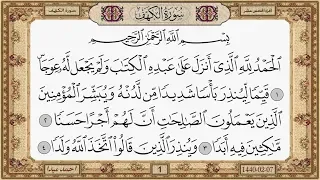 سورة الكهف
سُورَةُ الكَهْفِ
بِسْمِ اللَّهِ الرَّحْمَٰنِ الرَّحِيمِ
ٱلْحَمْدُ لِلَّهِ ٱلَّذِىٓ أَنزَلَ عَلَىٰ عَبْدِهِ ٱلْكِتَٰبَ وَلَمْ يَجْعَل لَّهُۥ عِوَجَاۜ
١ قَيِّمًا لِّيُنذِرَ بَأْسًا شَدِيدًا مِّن لَّدُنْهُ وَيُبَشِّرَ ٱلْمُؤْمِنِينَ
ٱلَّذِينَ يَعْمَلُونَ ٱلصَّٰلِحَٰتِ أَنَّ لَهُمْ أَجْرًا حَسَنًا ٢
مَّٰكِثِينَ فِيهِ أَبَدًا ٣ وَيُنذِرَ ٱلَّذِينَ قَالُوا۟ ٱتَّخَذَ ٱللَّهُ وَلَدًا ٤
1440-02-07
1